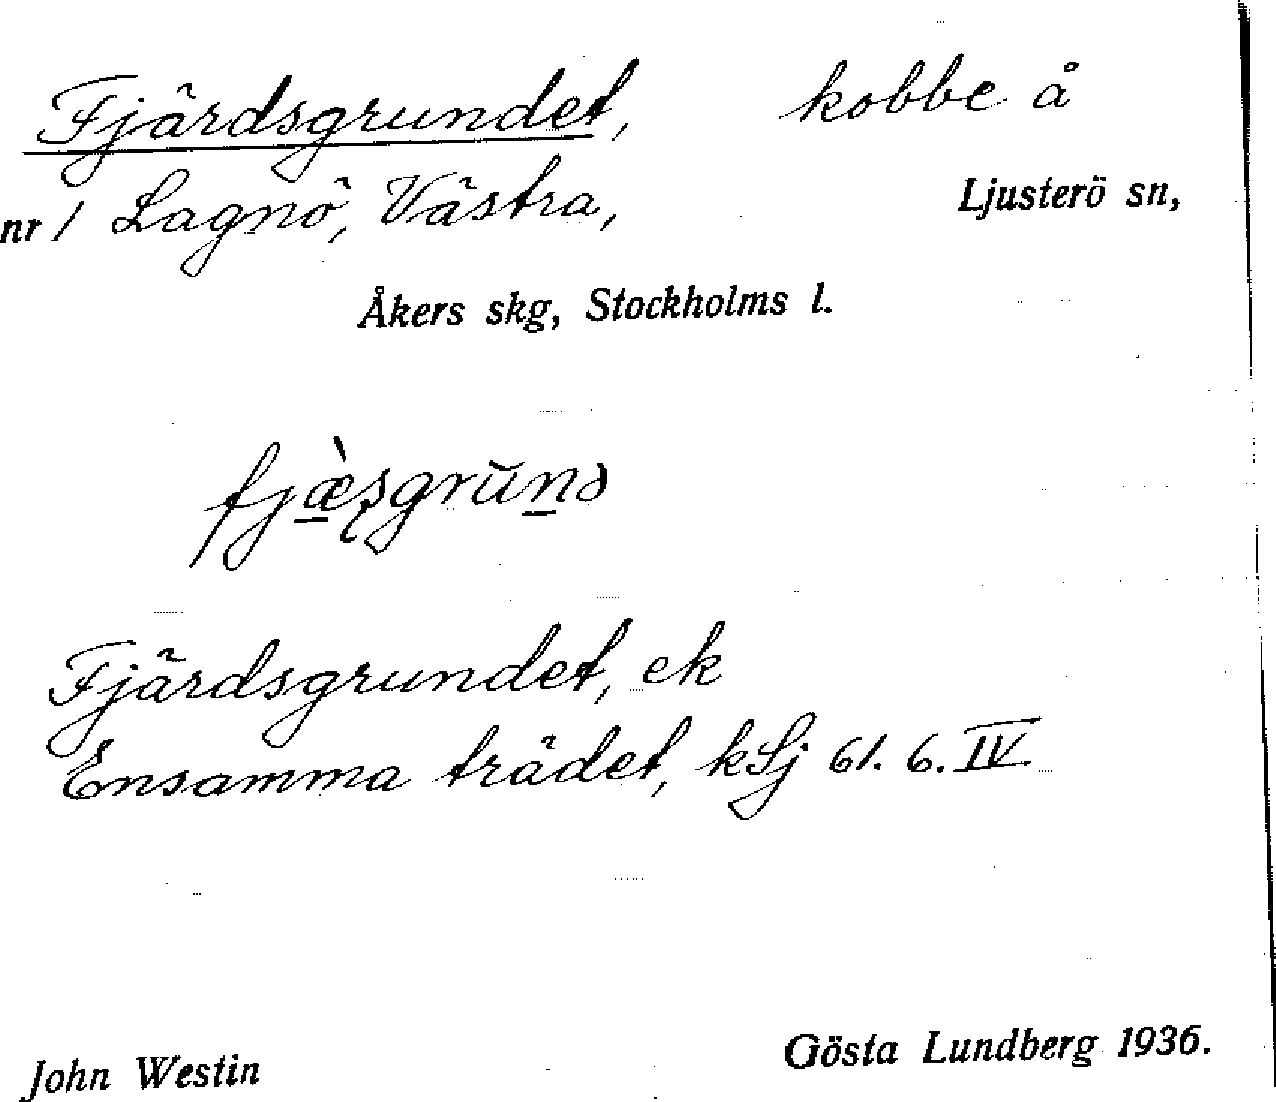 Fjärdsgrundet, kobbe å
nr 1 Lagnö, Västra, Ljusterö sn,
Åkers skg, Stockholms l.
Fjärdsgrundet, ek
Ensamma trädet, kLj 61. 6. IV.
John Westin Gösta Lundberg 1936.